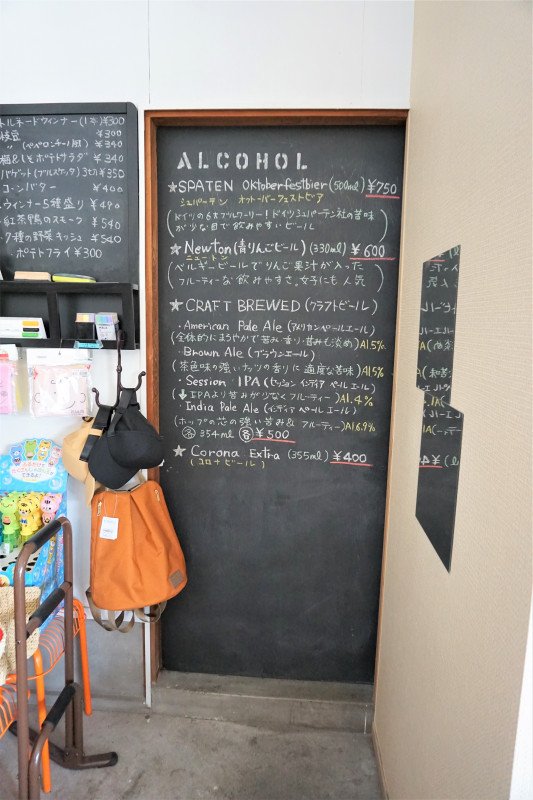 トルネードウィンナー(1本)¥300
枝豆 ¥300
〃 (ペペロンチーノ風) ¥340
梅&しそ ポテトサラダ ¥340
バゲット(ブルスケッタ)3セット ¥350
コーンバター ¥400
ウィンナー5種盛り ¥490
紅茶鴨のスモーク ¥540
7種の野菜キッシュ ¥540
ポテトフライ ¥300
ALCOHOL
★SPATEN Oktoberfestbier(500ml) ¥750
シュパーテン オクトーバーフェストビア
(ドイツの6大ブルワーリー!ドイツシュパーテン社の苦味
が少な目で飲みやすいビール)
★Newton(青りんごビール)(330ml) ¥600
ニュートン
(ベルギービールでりんご果汁が入った
フルーティーな飲みやすさ。女子にも人気)
★CRAFT BREWED(クラフトビール)
・American Pale Ale(アメリカンペールエール)
(全体的にまろやかで苦み・香り・甘みも淡め)Al.5%
・Brown Ale(ブラウンエール)
(茶色味の強いナッツの香りに適度な苦味)Al.5%
・Session IPA(セッション インディア ペールエール)
(↓IPAより苦みが少なくフルーティー)Al.4%
・India Pale Ale(インディア ペール エール)
(ホップの芯の強い苦み& フルーティー)Al.6.9%
各 354ml 各 ¥500
★Corona Extra(355ml) ¥400
(コロナ ビール)